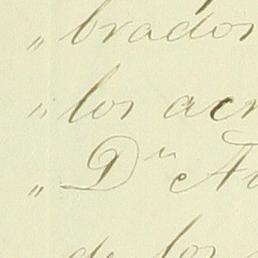 „ brados
„ los acr
„ Dn A
de los